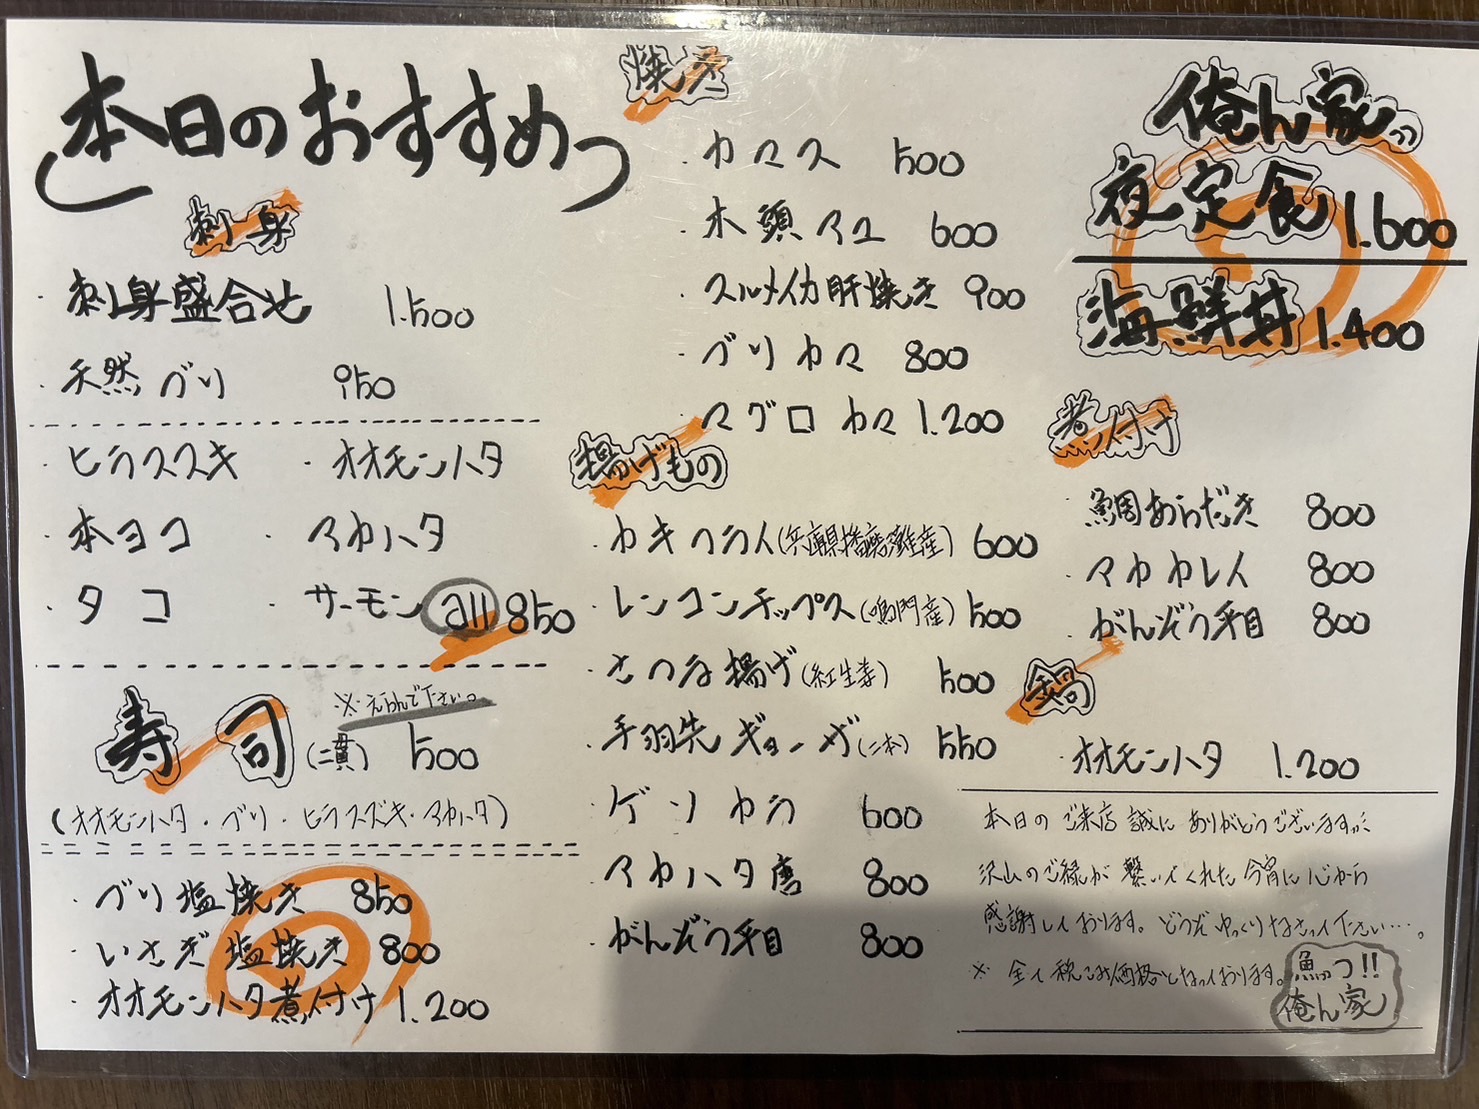 本日のおすすめっ
刺身
・刺身盛合せ 1.500
・天然ブリ 950
・ヒラスズキ ・オオモンハタ
・本ヨコ ・アカハタ
・タコ ・サーモン all 850
寿司 (二貫) 500
※えらんで下さい。
(オオモンハタ・ブリ・ヒラスズキ・アカハタ)
・ブリ塩焼き 850
・いさぎ塩焼き 800
・オオモンハタ煮付け 1.200
焼き
・カマス 500
・木頭マユ 600
・スルメイカ肝焼き 900
・ブリカマ 800
・マグロカマ 1.200
揚げもの
・カキフライ(兵庫県播磨灘産) 600
・レンコンチップス(鳴門産) 500
・さつま揚げ(紅生姜) 500
・手羽先ギョーザ(二本) 550
・ゲソカラ 600
・アカハタ唐 800
・がんぞう平目 800
俺ん家っ
夜定食 1.600
海鮮丼 1.400
煮付け
・鯛あらだき 800
・マカカレイ 800
・がんぞう平目 800
鍋
・オオモンハタ 1.200
本日のご来店誠にありがとうございます。
沢山のご縁が繋いでくれた今宵に心から
感謝しております。どうぞゆっくりなさって下さい…。
※全て税こみ価格となっております。
魚っつ!!
俺ん家